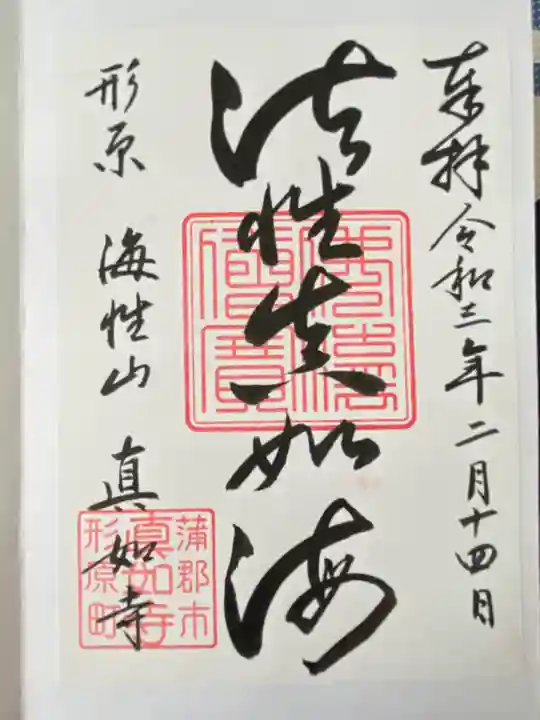 奉拝 令和三年二月十四日
法性真如海
形原 海性山 真如寺
佛法僧寶
蒲郡市
真如寺
形原町